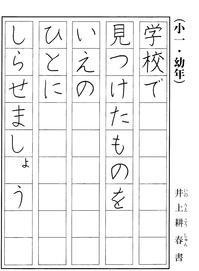 (小一・幼年)
井上耕春書
学校で
見つけたものを
いえの
ひとに
しらせましょう